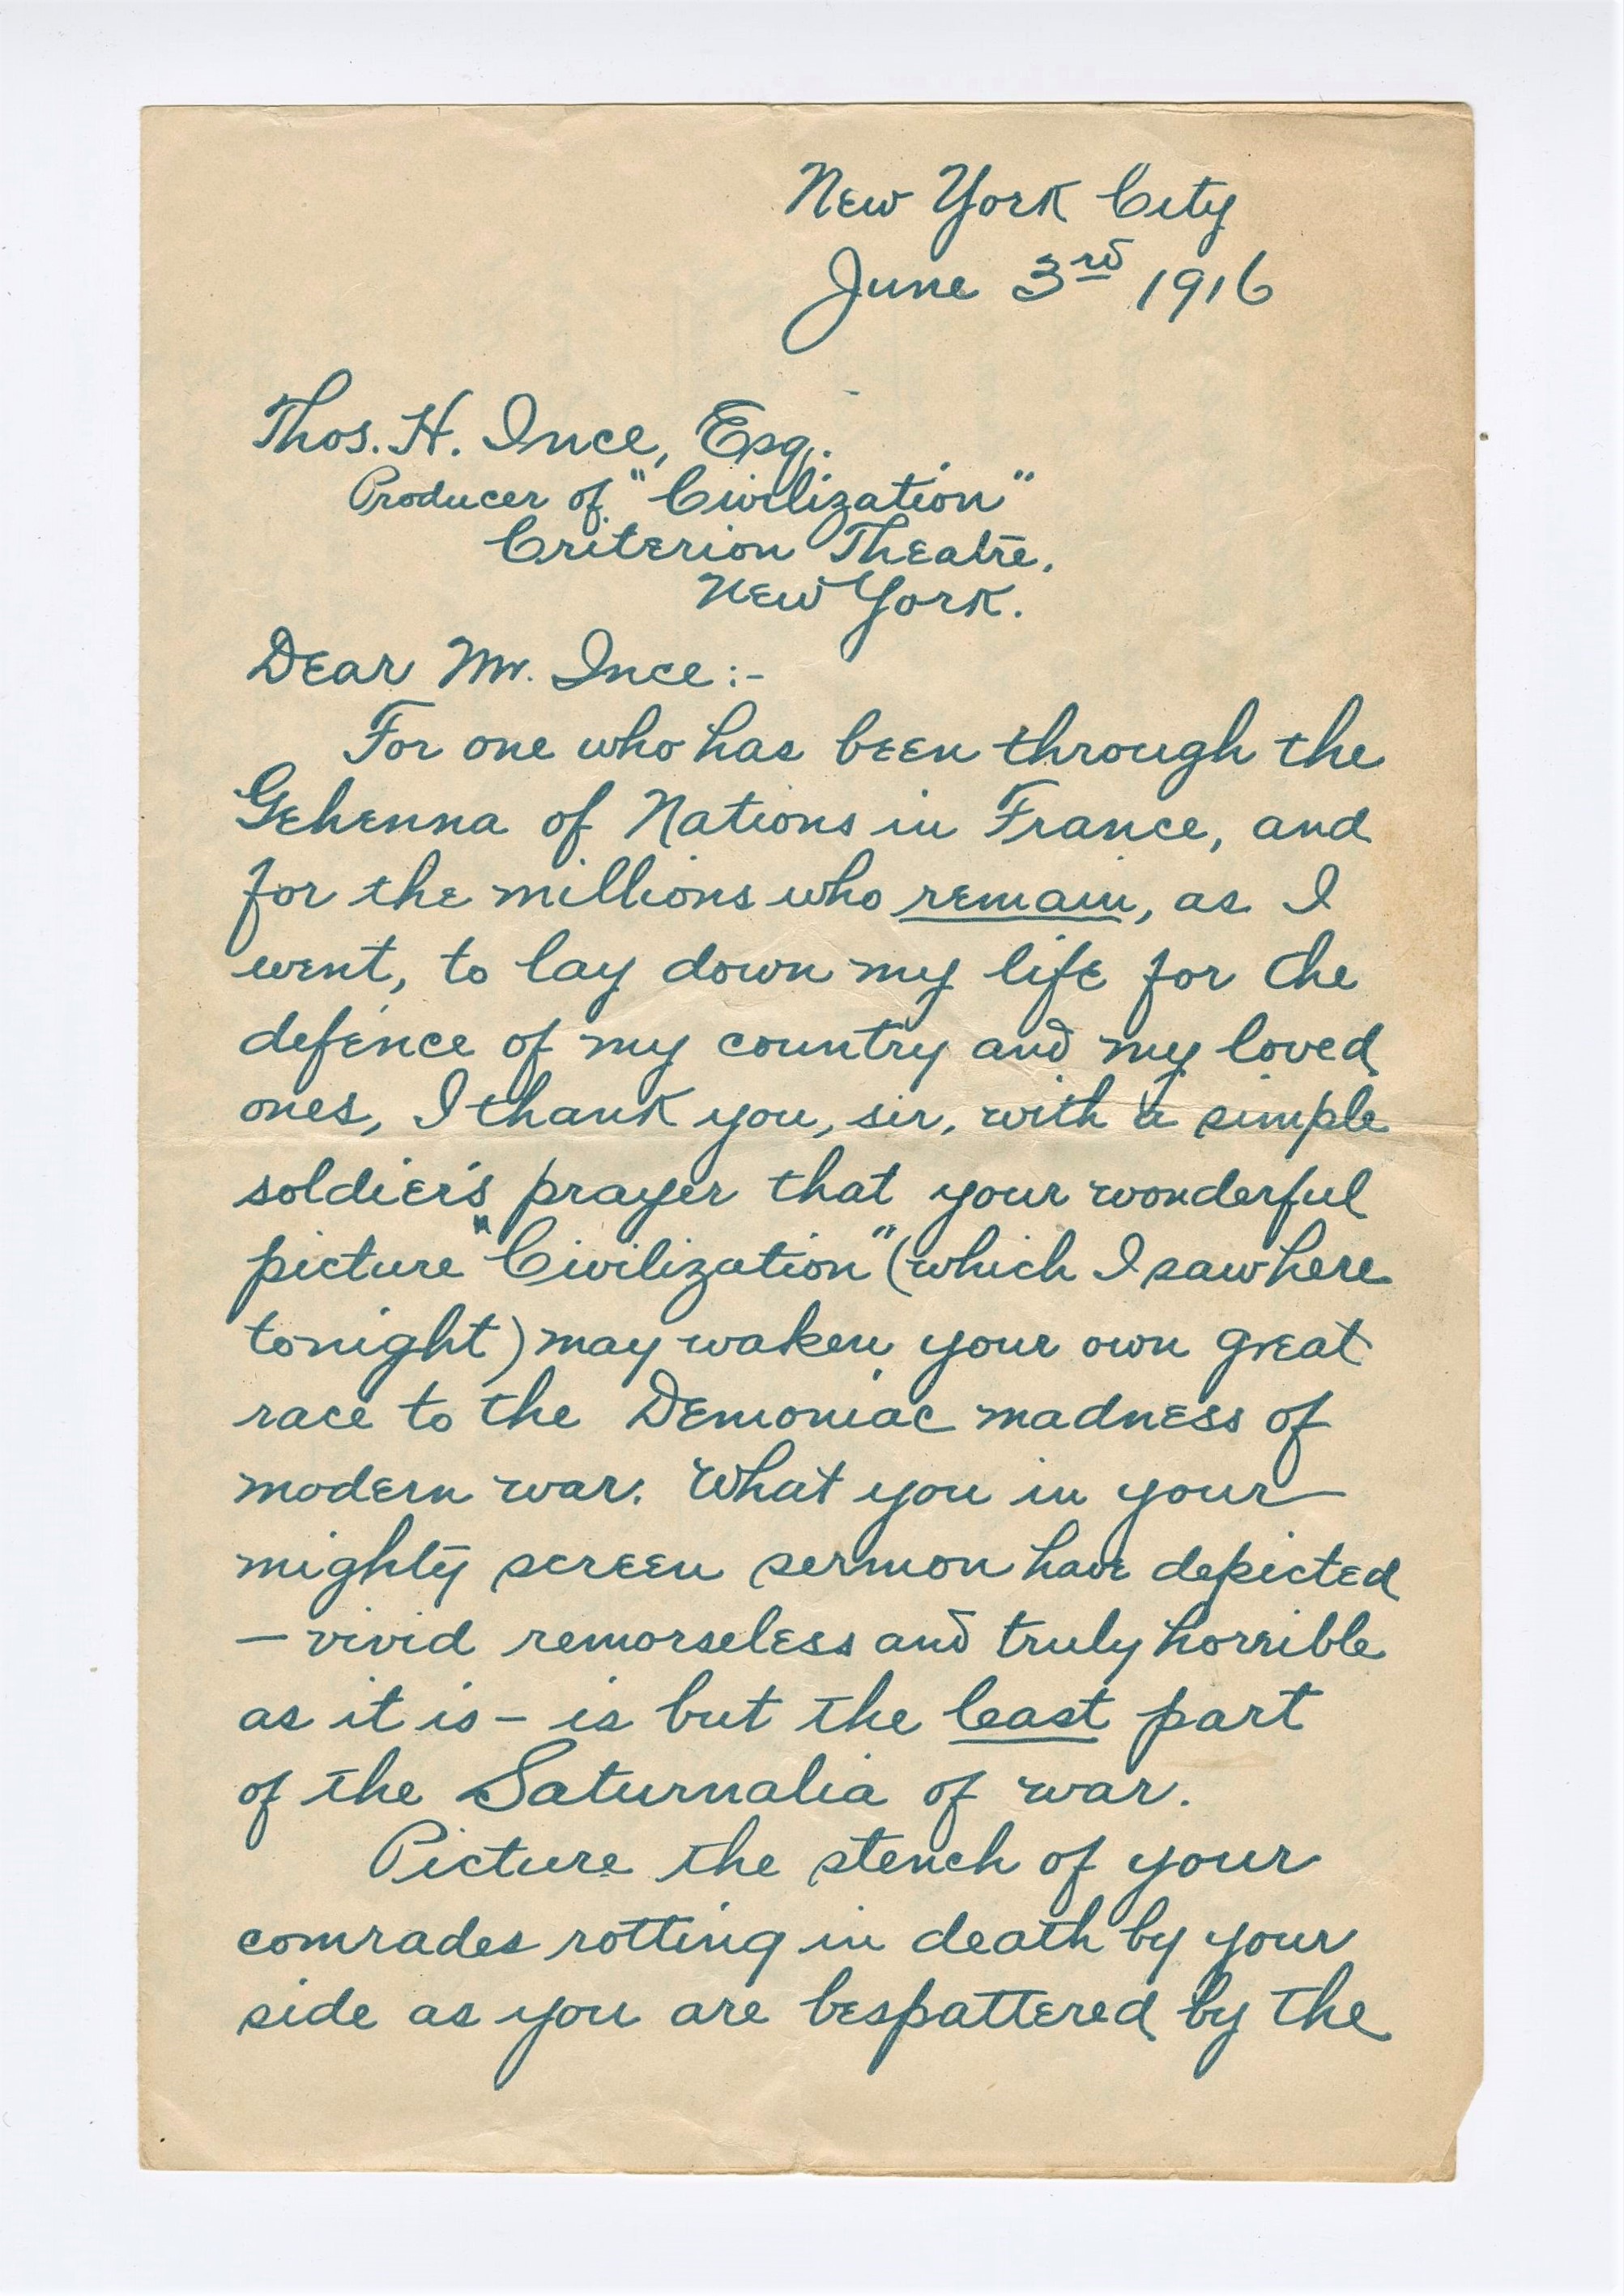 New York City
June 3rd 1916
Thos. H. Ince, Esq.
Producer of "Civilization"
Criterion Theatre.
New York.
Dear Mr. Ince:-
For one who has been through the
Gehenna of Nations in France, and
for the millions who remain, as I
went, to lay down my life for the
defence of my country and my loved
ones, I thank you, sir, with a simple
soldier's prayer that your wonderful
picture "Civilization" (which I saw here
tonight) may waken your own great
race to the Demoniac madness of
modern war. What you in your
mighty screen sermon have depicted
- vivid remorseless and truly horrible
as it is - is but the least part
of the Saturnalia of war.
Picture the stench of your
comrades rotting in death by your
side as you are bespattered by the